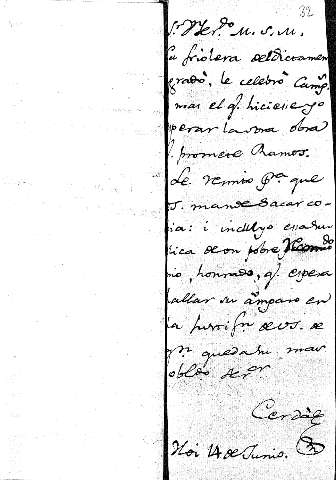 32
Sr. Ferdo. M. S. M.
La friolera del dictamen
grado, le celebrò Camp.
mas el q. hiciese yo
operar la vna obra
q. promete Ramos.
Le remito pa. que
vs. mande sacar co-
pia: i incluyo essa su
plica de un pobre
nio, honrado, q. espera
hallar su amparo en
la justifn. de vs. de
qn. quedarà mas
obldo. seror.
Cerdà
Hoi 14 de Junio.